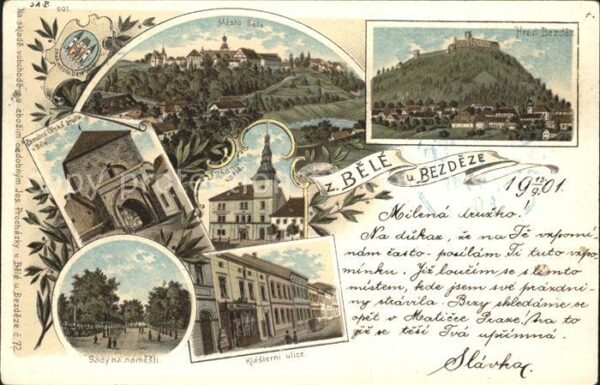 901.
Město Bělá
Hrad Bezděz
Na skladě v obchodě se zbožím osadobným Jos. Procházky v Bělé u Bezděze č 72
Brána
v Bělé
z BĚLÉ u BEZDĚZE
19 13/9 01.
Milená družko!
Na důkaz, že na Tě vzpomí-
nám často - posílám Ti tuto vzpo-
mínku. Již loučím se s tímto
místem, kde jsem své prázdni-
ny strávila. Brzy shledáme se
opět v Matičce Praze! na to
již se těší Tvá upřímná
Slávka.
Sady na náměstí.
Klášterní ulice.